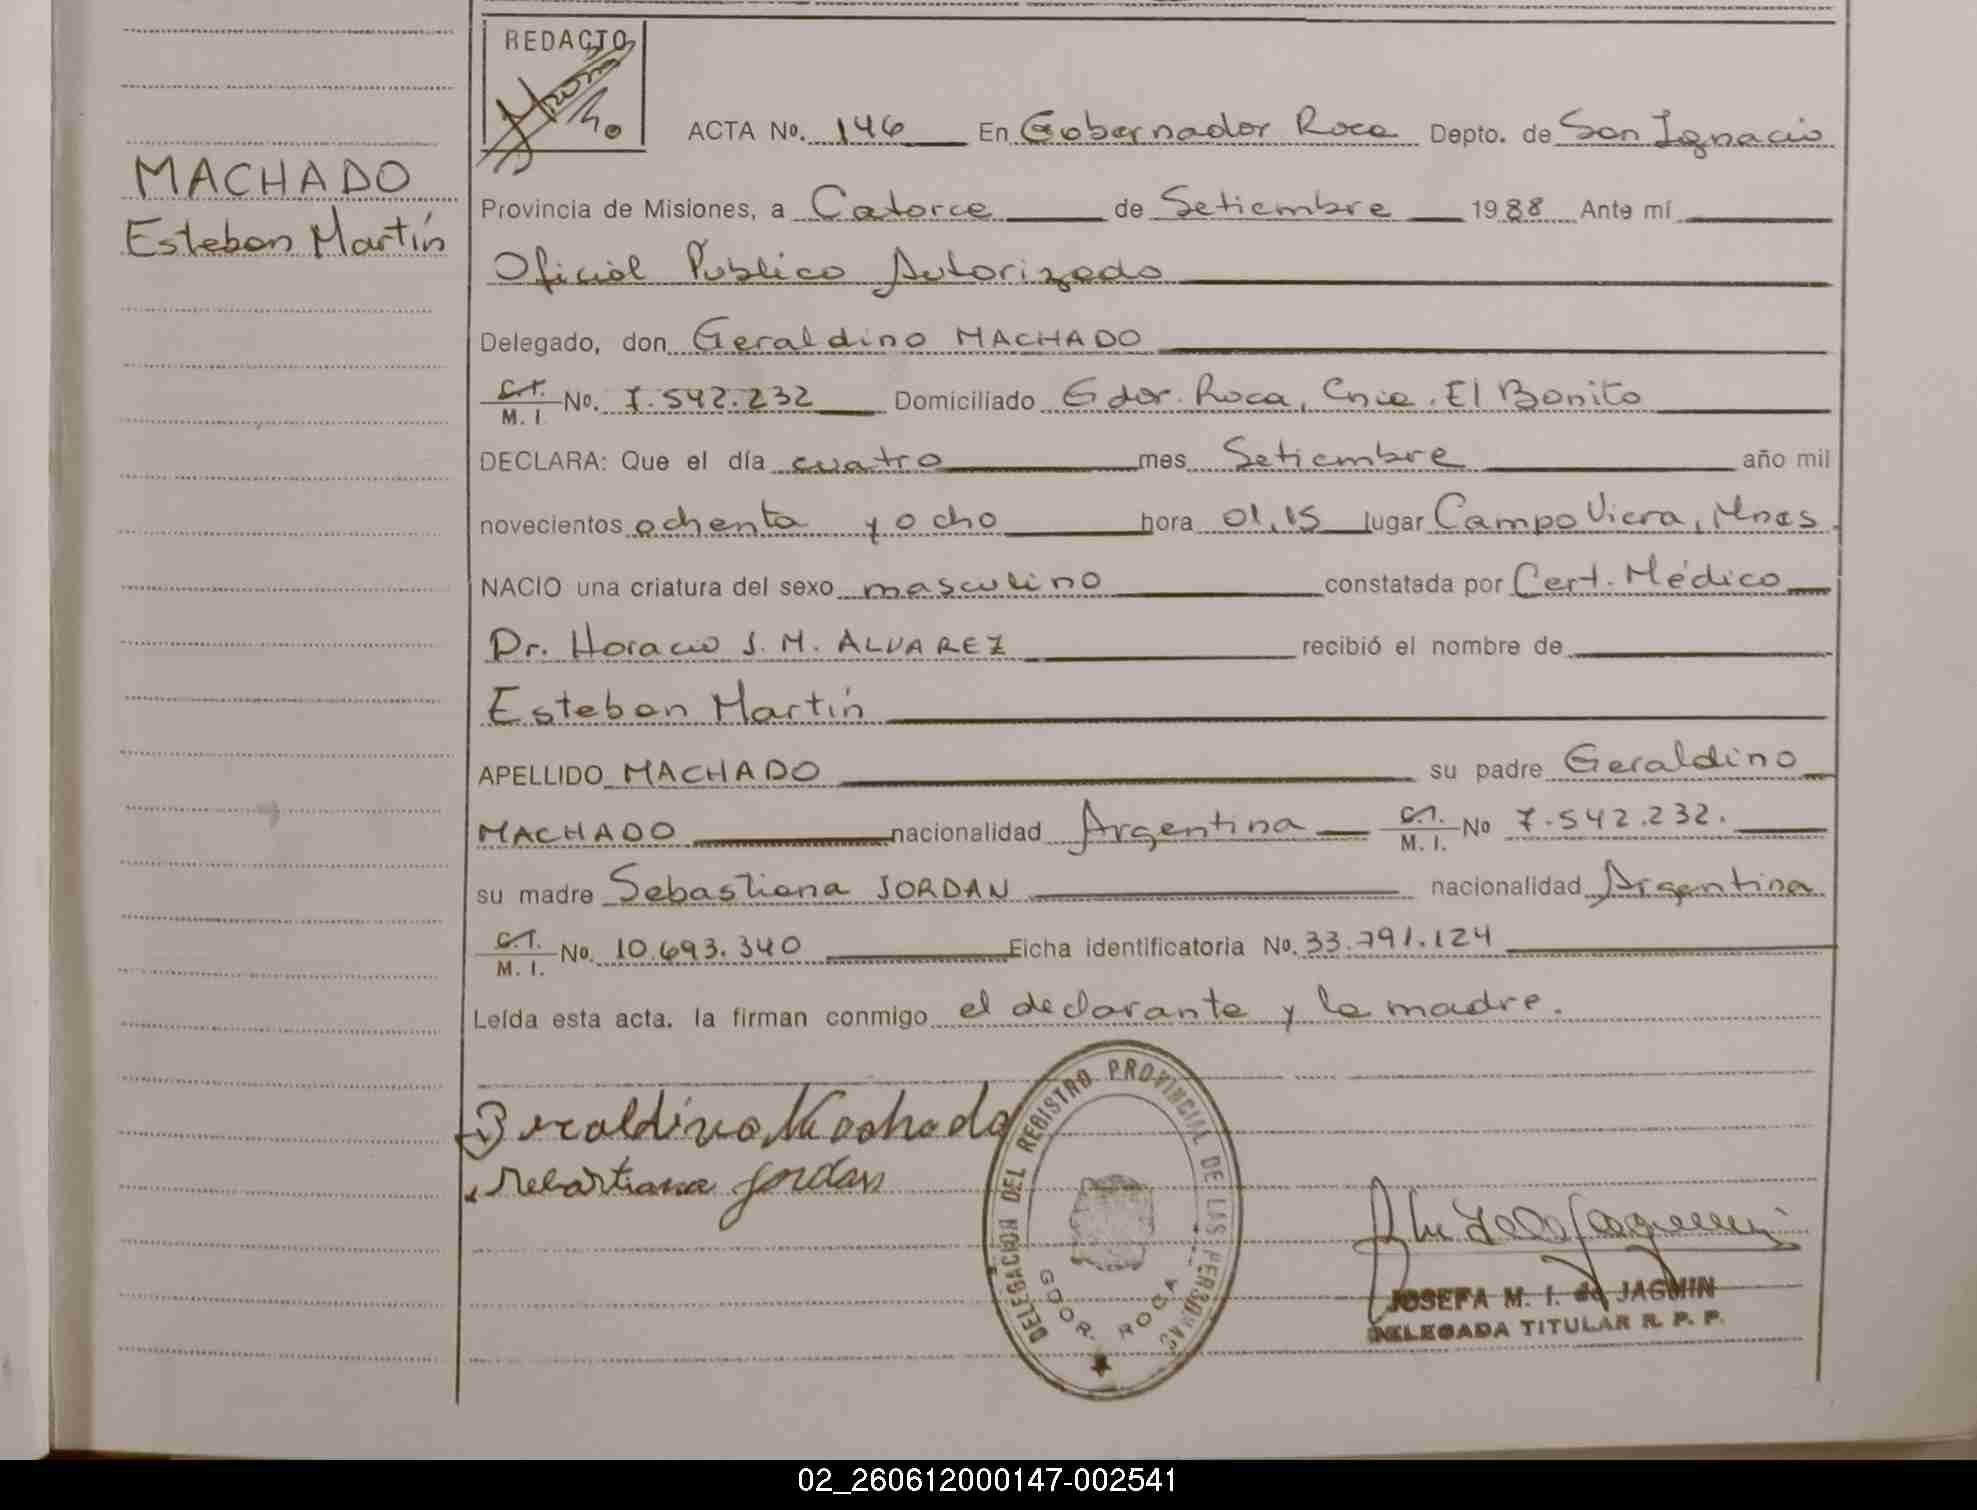 REDACTO
ACTA No. 146 En Gobernador Roca Depto. de San Ignacio
MACHADO
Esteban Martín
Provincia de Misiones, a Catorce de Setiembre 1988 Ante mí
Oficial Público Autorizado
Delegado, don Geraldino MACHADO
C.I. M. I. No. 7.542.232 Domiciliado Gdor. Roca, Cnia. El Bonito
DECLARA: Que el día cuatro mes Setiembre año mil
novecientos ochenta y ocho hora 01,15 lugar Campo Viera, Mnes.
NACIO una criatura del sexo masculino constatada por Cert. Médico
Dr. Horacio J. M. ALVAREZ recibió el nombre de
Esteban Martín
APELLIDO MACHADO su padre Geraldino
MACHADO nacionalidad Argentina C.I. M. I. No 7.542.232.
su madre Sebastiana JORDAN nacionalidad Argentina
C.I. M. I. No. 10.693.340 Ficha identificatoria No. 33.791.124
Leída esta acta, la firman conmigo el declarante y la madre.
Geraldino Machado
Sebastiana Jordan
DELEGACION DEL REGISTRO PROVINCIAL DE LAS PERSONAS
GDOR. ROCA
JOSEFA M. I. de JAGMIN
DELEGADA TITULAR R. P. P.
02_260612000147-002541